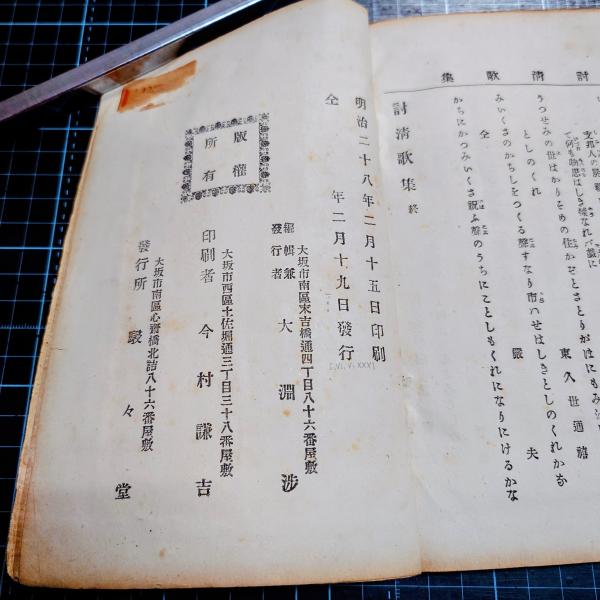 討清歌集
東久世通禧
うつせみの世はかりそめの住かぞとさとりがほにもみ
としのくれ
嚴夫
みいくさのかちしをつくる聲すなり市のせはしきとしのくれかな
仝
かちにかつみいくさ祝ふ聲のうちにことしもくれになりにけるかな
討清歌集 終
明治二十八年二月十五日印刷
仝 年二月十九日發行
大坂市南區末吉橋通四丁目八十六番屋敷
編輯兼發行者 大淵渉
大坂市西區土佐堀通三丁目三十八番屋敷
印刷者 今村謙吉
大坂市南區心齋橋北詰八十六番屋敷
發行所 駸々堂
版權所有